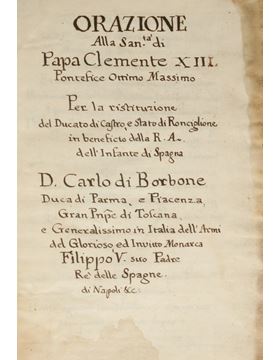 ORAZIONE
Alla San.tà di
Papa Clemente XIII.
Pontefice Ottimo Massimo
Per la ristituzione
del Ducato di Castro, e Stato di Ronciglione
in beneficio della R. A.
dell'Infante di Spagna
D. Carlo di Borbone
Duca di Parma, e Piacenza,
Gran Pnpe di Toscana,
e Generalissimo in Italia dell'Armi
del Glorioso, ed Invitto Monarca
Filippo V. suo Padre
Re' delle Spagne.
di Napoli &c.